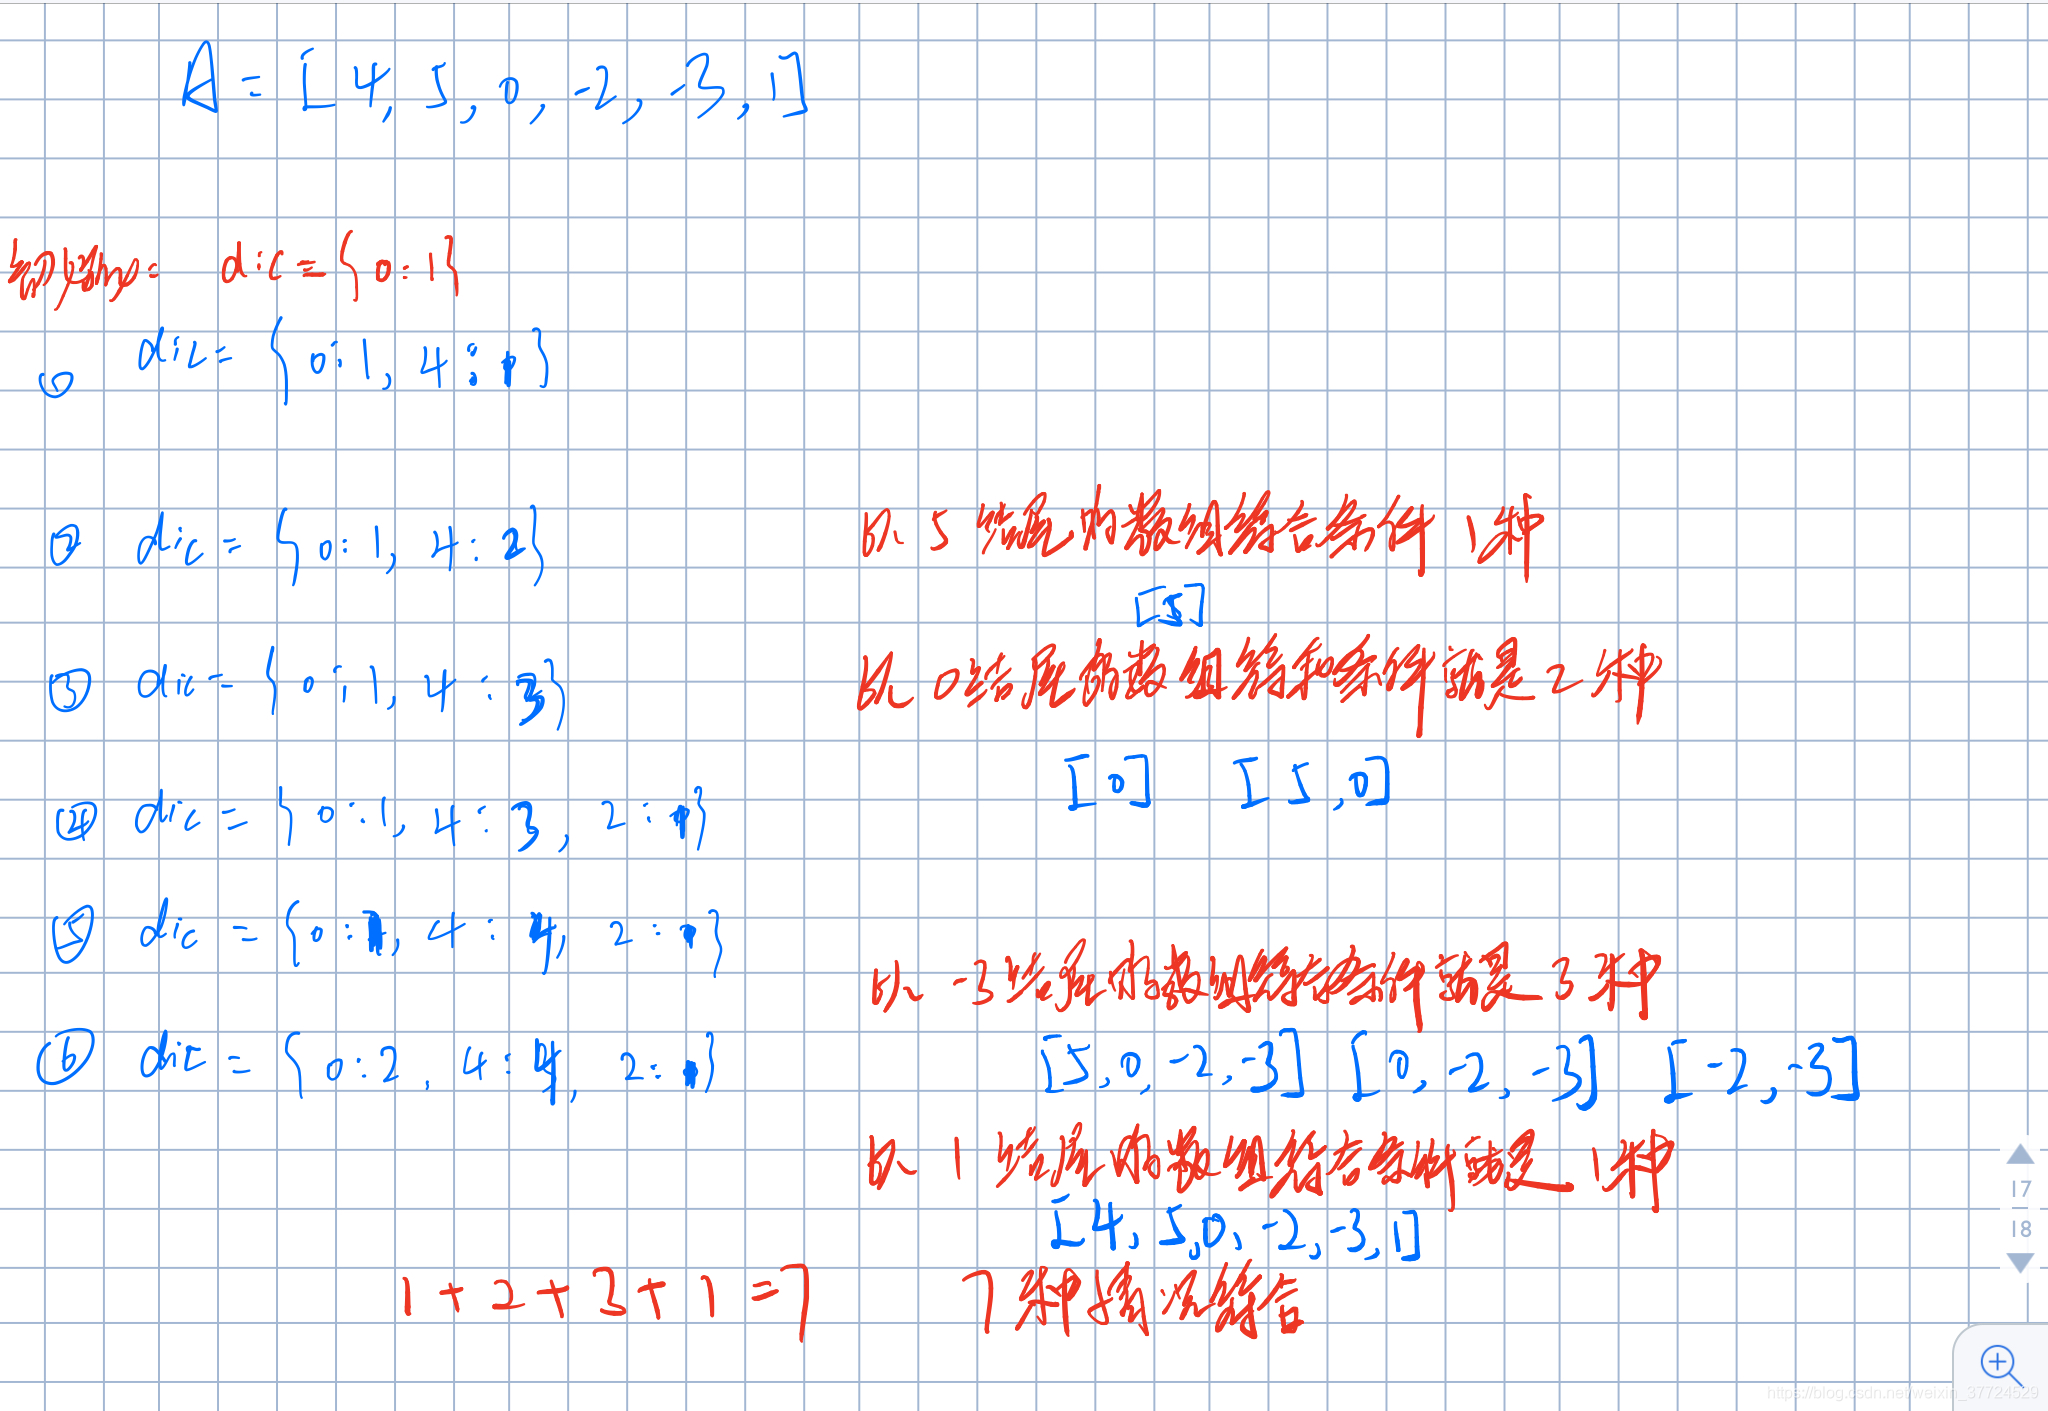 A = [4, 5, 0, -2, -3, 1]
初始化: dic = {0:1}
① dic = {0:1, 4:1}
② dic = {0:1, 4:2}
以 5 结尾的数组符合条件 1种
[5]
③ dic = {0:1, 4:3}
以 0 结尾的数组符和条件就是 2 种
[0] [5,0]
④ dic = {0:1, 4:3, 2:1}
⑤ dic = {0:1, 4:4, 2:1}
以 -3 结尾的数组符合条件就是 3 种
⑥ dic = {0:2, 4:4, 2:1}
[5,0,-2,-3] [0,-2,-3] [-2,-3]
以 1 结尾的数组符合条件就是 1种
[4, 5,0, -2, -3, 1]
1+2+3+1=7 7种情况符合
17
18
https://blog.csdn.net/weixin_37724529